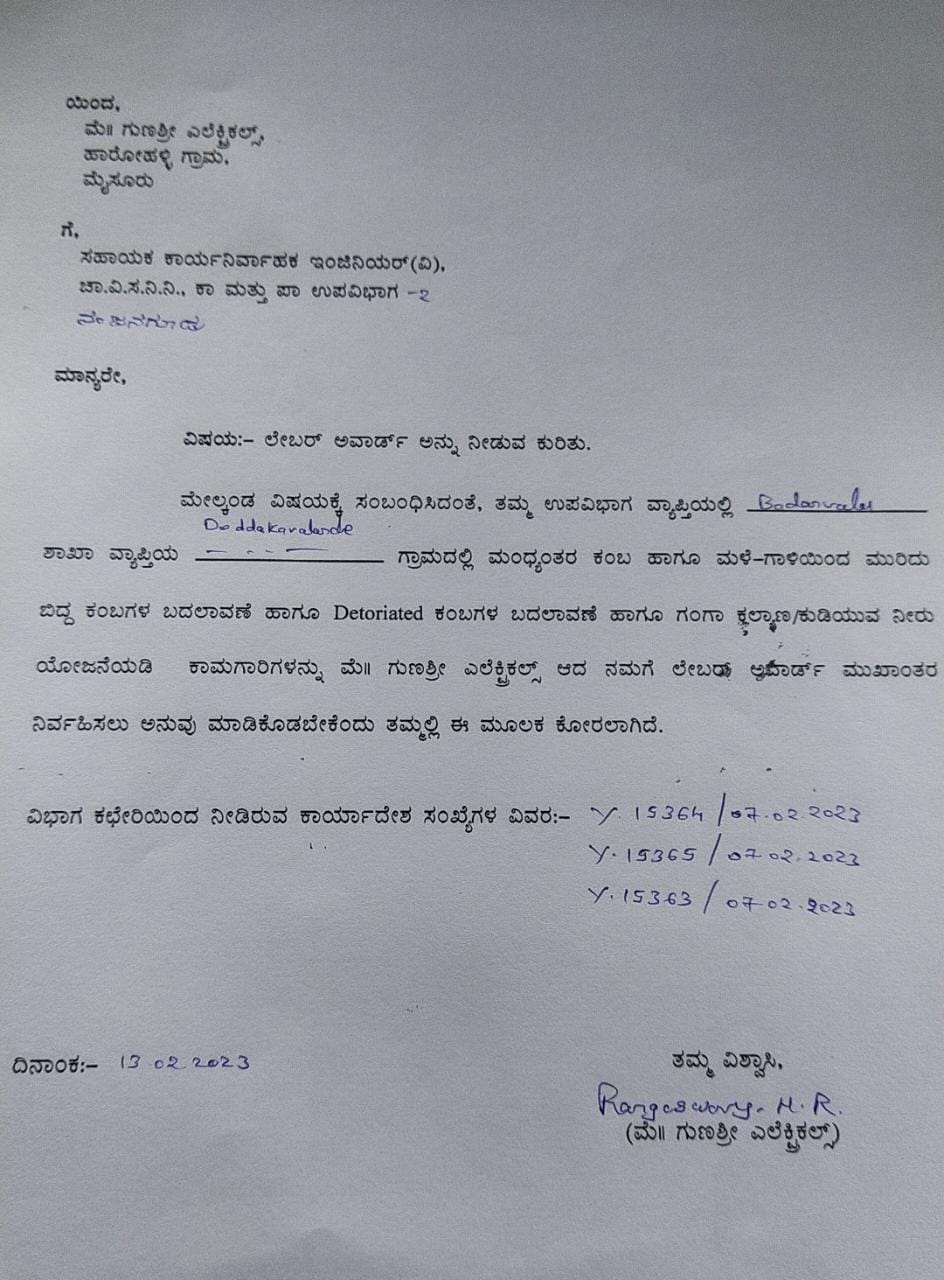 ಯಿಂದ,
ಮೆ॥ ಗುಣಶ್ರೀ ಎಲೆಕ್ಟ್ರಿಕಲ್ಸ್,
ಹಾರೋಹಳ್ಳಿ ಗ್ರಾಮ,
ಮೈಸೂರು
ಗೆ,
ಸಹಾಯಕ ಕಾರ್ಯನಿರ್ವಾಹಕ ಇಂಜಿನಿಯರ್(ವಿ),
ಚಾ.ವಿ.ಸ.ನಿ.ನಿ., ಕಾ ಮತ್ತು ಪಾ ಉಪವಿಭಾಗ -೨
ನಂಜನಗೂಡು
ಮಾನ್ಯರೇ,
ವಿಷಯ:– ಲೇಬರ್ ಅವಾರ್ಡ್ ಅನ್ನು ನೀಡುವ ಕುರಿತು.
ಮೇಲ್ಕಂಡ ವಿಷಯಕ್ಕೆ ಸಂಬಂಧಿಸಿದಂತೆ, ತಮ್ಮ ಉಪವಿಭಾಗ ವ್ಯಾಪ್ತಿಯಲ್ಲಿ Badanvalu
Doddakavalande
ಶಾಖಾ ವ್ಯಾಪ್ತಿಯ ಗ್ರಾಮದಲ್ಲಿ ಮಂಧ್ಯಂತರ ಕಂಬ ಹಾಗೂ ಮಳೆ–ಗಾಳಿಯಿಂದ ಮುರಿದು
ಬಿದ್ದ ಕಂಬಗಳ ಬದಲಾವಣೆ ಹಾಗೂ Detoriated ಕಂಬಗಳ ಬದಲಾವಣೆ ಹಾಗೂ ಗಂಗಾ ಕಲ್ಯಾಣ/ಕುಡಿಯುವ ನೀರು
ಯೋಜನೆಯಡಿ ಕಾಮಗಾರಿಗಳನ್ನು ಮೆ॥ ಗುಣಶ್ರೀ ಎಲೆಕ್ಟ್ರಿಕಲ್ಸ್ ಆದ ನಮಗೆ ಲೇಬರ್ ಅವಾರ್ಡ್ ಮುಖಾಂತರ
ನಿರ್ವಹಿಸಲು ಅನುವು ಮಾಡಿಕೊಡಬೇಕೆಂದು ತಮ್ಮಲ್ಲಿ ಈ ಮೂಲಕ ಕೋರಲಾಗಿದೆ.
ವಿಭಾಗ ಕಛೇರಿಯಿಂದ ನೀಡಿರುವ ಕಾರ್ಯಾದೇಶ ಸಂಖ್ಯೆಗಳ ವಿವರ:– Y. 15364 / 07.02.2023
Y. 15365 / 07 02. 2023
Y. 15363 / 07 02.2023
ದಿನಾಂಕ:– 13 02 2023
ತಮ್ಮ ವಿಶ್ವಾಸಿ,
H. R.
(ಮೆ॥ ಗುಣಶ್ರೀ ಎಲೆಕ್ಟ್ರಿಕಲ್ಸ್)